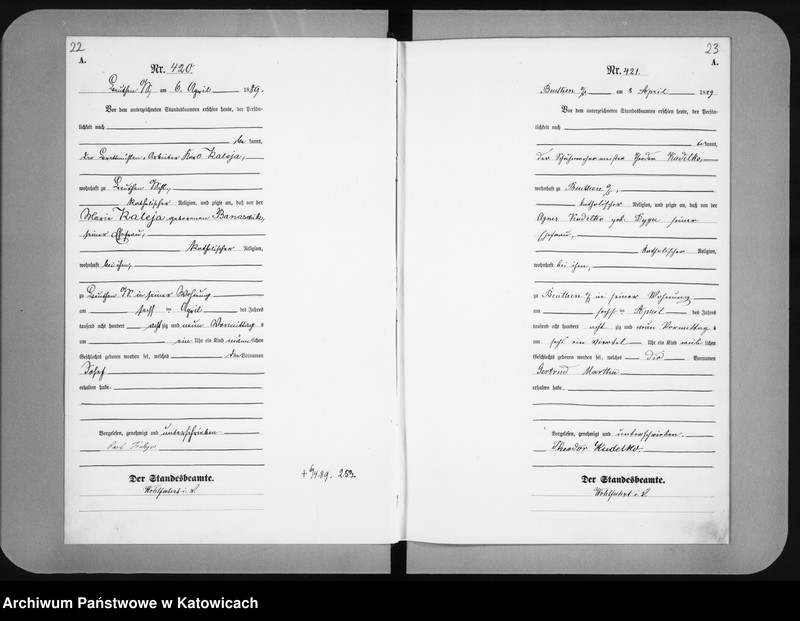 22
A.
Nr. 420.
Beuthen O/S am 6. April 1889.
Vor dem unterzeichneten Standesbeamten erschien heute, der Persön-
lichkeit nach
be kannt,
der Arbeiter Kaleja,
wohnhaft zu Beuthen
katholischer Religion, und zeigte an, daß von der
Marie Kaleja geborenen
seiner Ehefrau,
katholischer Religion,
wohnhaft bei ihm,
zu Beuthen O/S in seiner Wohnung
am sechs ten April des Jahres
tausend acht hundert acht zig und neun Vormittag s
um ein Uhr ein Kind männ lichen
Geschlechts geboren worden sei, welches den Vornamen
Josef
erhalten habe.
Vorgelesen, genehmigt und unterschrieben
Der Standesbeamte.
Wohlfahrt i. V.
+ 6/4 89. 253.
23
A.
Nr. 421.
Beuthen O/S am 8 April 1889
Vor dem unterzeichneten Standesbeamten erschien heute, der Persön-
lichkeit nach
be kannt,
der Kudelko,
wohnhaft zu Beuthen O/S,
katholischer Religion, und zeigte an, daß von der
Agnes Kudelko geb. seiner
Ehefrau,
katholischer Religion,
wohnhaft bei ihm,
zu Beuthen O/S in seiner Wohnung
am sechs ten April des Jahres
tausend acht hundert acht zig und neun Vormittag s
um sechs ein viertel Uhr ein Kind weib lichen
Geschlechts geboren worden sei, welches die Vornamen
Gertrud Martha
erhalten habe.
Vorgelesen, genehmigt und unterschrieben.
Theodor Kudelko.
Der Standesbeamte.
Wohlfahrt i. V.
Archiwum Państwowe w Katowicach